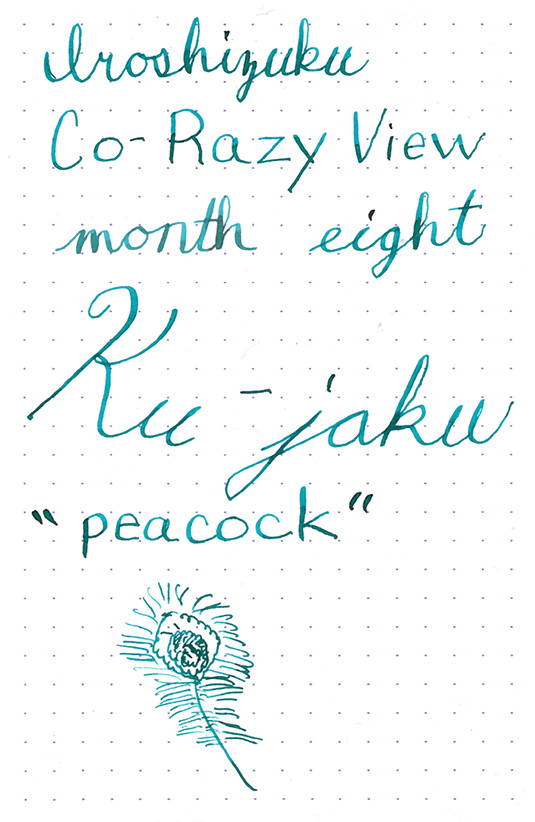 Iroshizuku
Co-Razy View
month eight
Ku-jaku
"peacock"